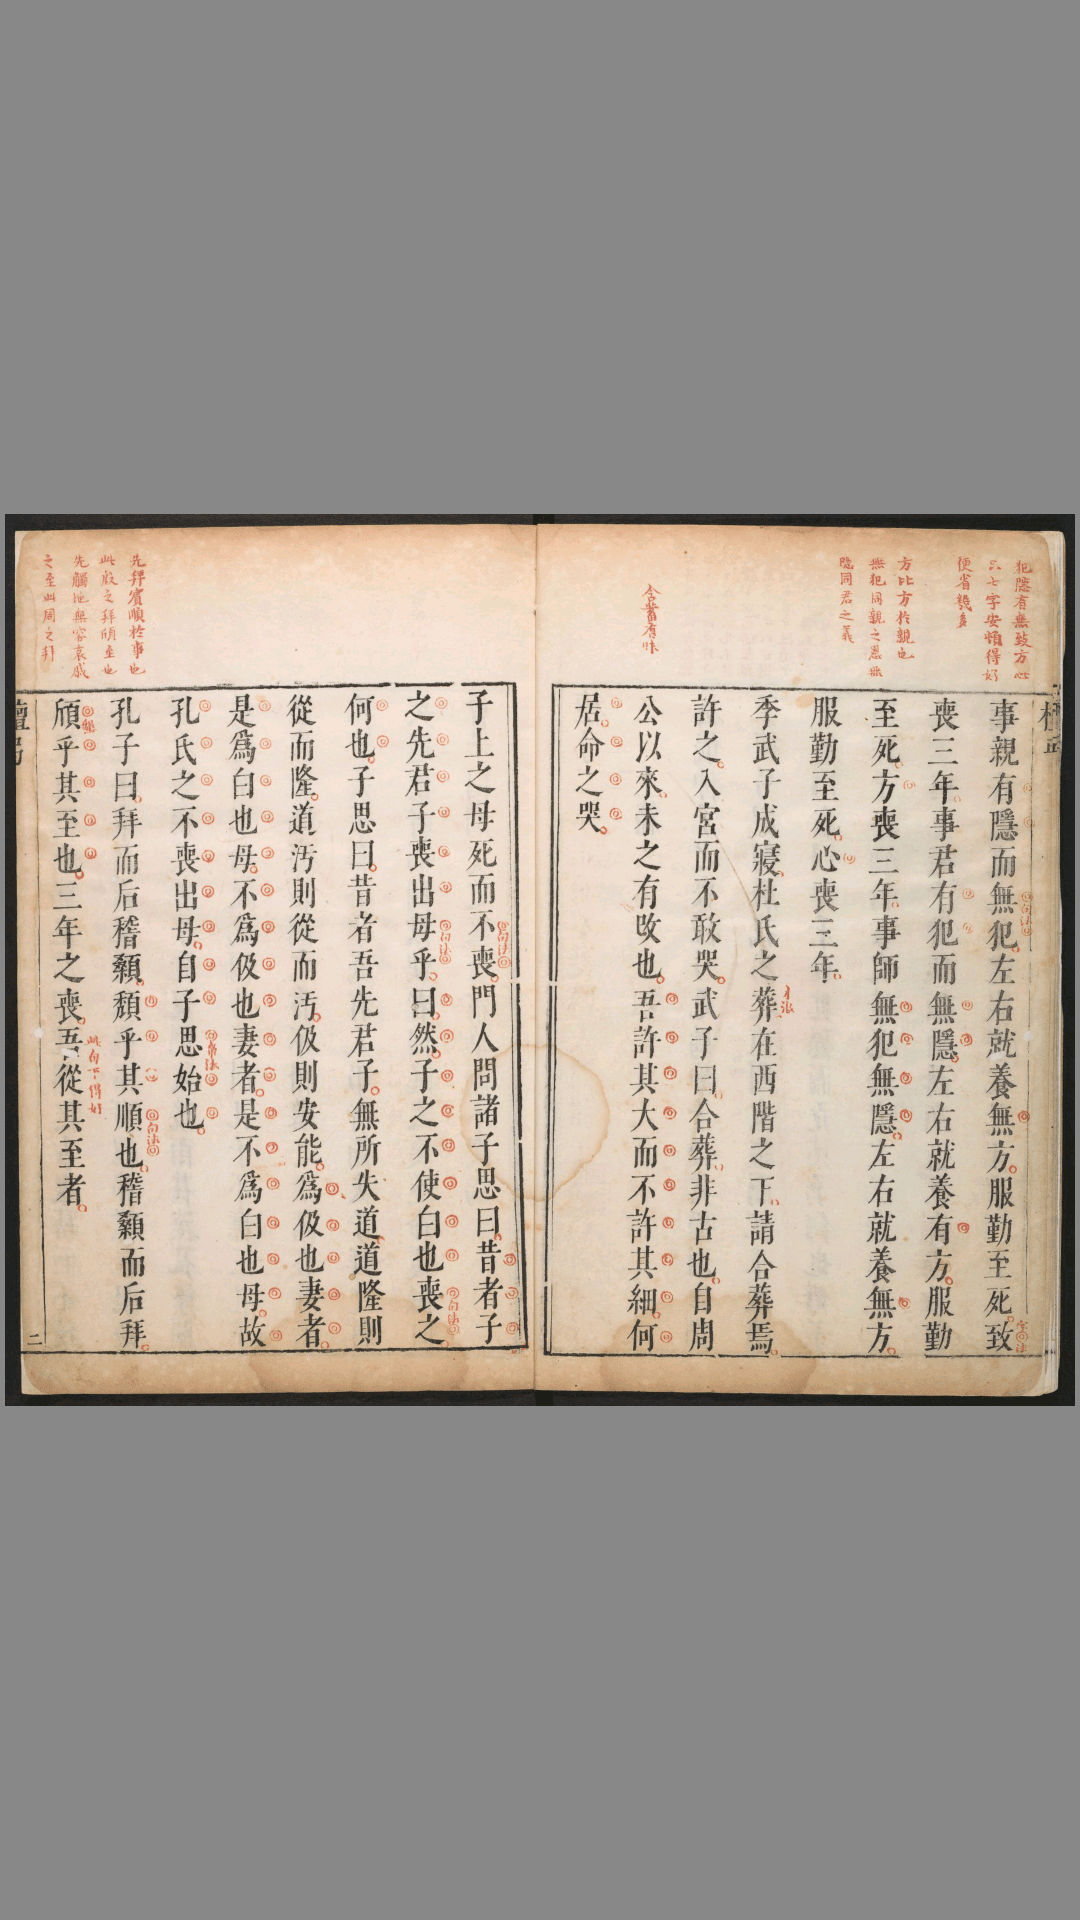 犯隱有無致方心
六七字安頓得好
便省幾多
方比方於親也
無犯同親之恩無
隱同君之義
含蓄有味
事親有隱而無犯左右就養無方服勤至死致
喪三年事君有犯而無隱左右就養有方服勤
至死方喪三年事師無犯無隱左右就養無方
服勤至死心喪三年
季武子成寢杜氏之葬在西階之下請合葬焉
許之入宮而不敢哭武子曰合葬非古也自周
公以來未之有改也吾許其大而不許其細何
居命之哭
句法
字法
章法
先拜賓順於事也
此殷之拜頎至也
先觸地無容哀戚
之至此周之拜
子上之母死而不喪門人問諸子思曰昔者子
之先君子喪出母乎曰然子之不使白也喪之
何也子思曰昔者吾先君子無所失道道隆則
從而隆道汚則從而汚伋則安能爲伋也妻者
是爲白也母不爲伋也妻者是不爲白也母故
孔氏之不喪出母自子思始也
孔子曰拜而后稽顙頹乎其順也稽顙而后拜
頎乎其至也三年之喪吾從其至者
句法
句法
句法
章法
句法
此句下得好
檀弓
二